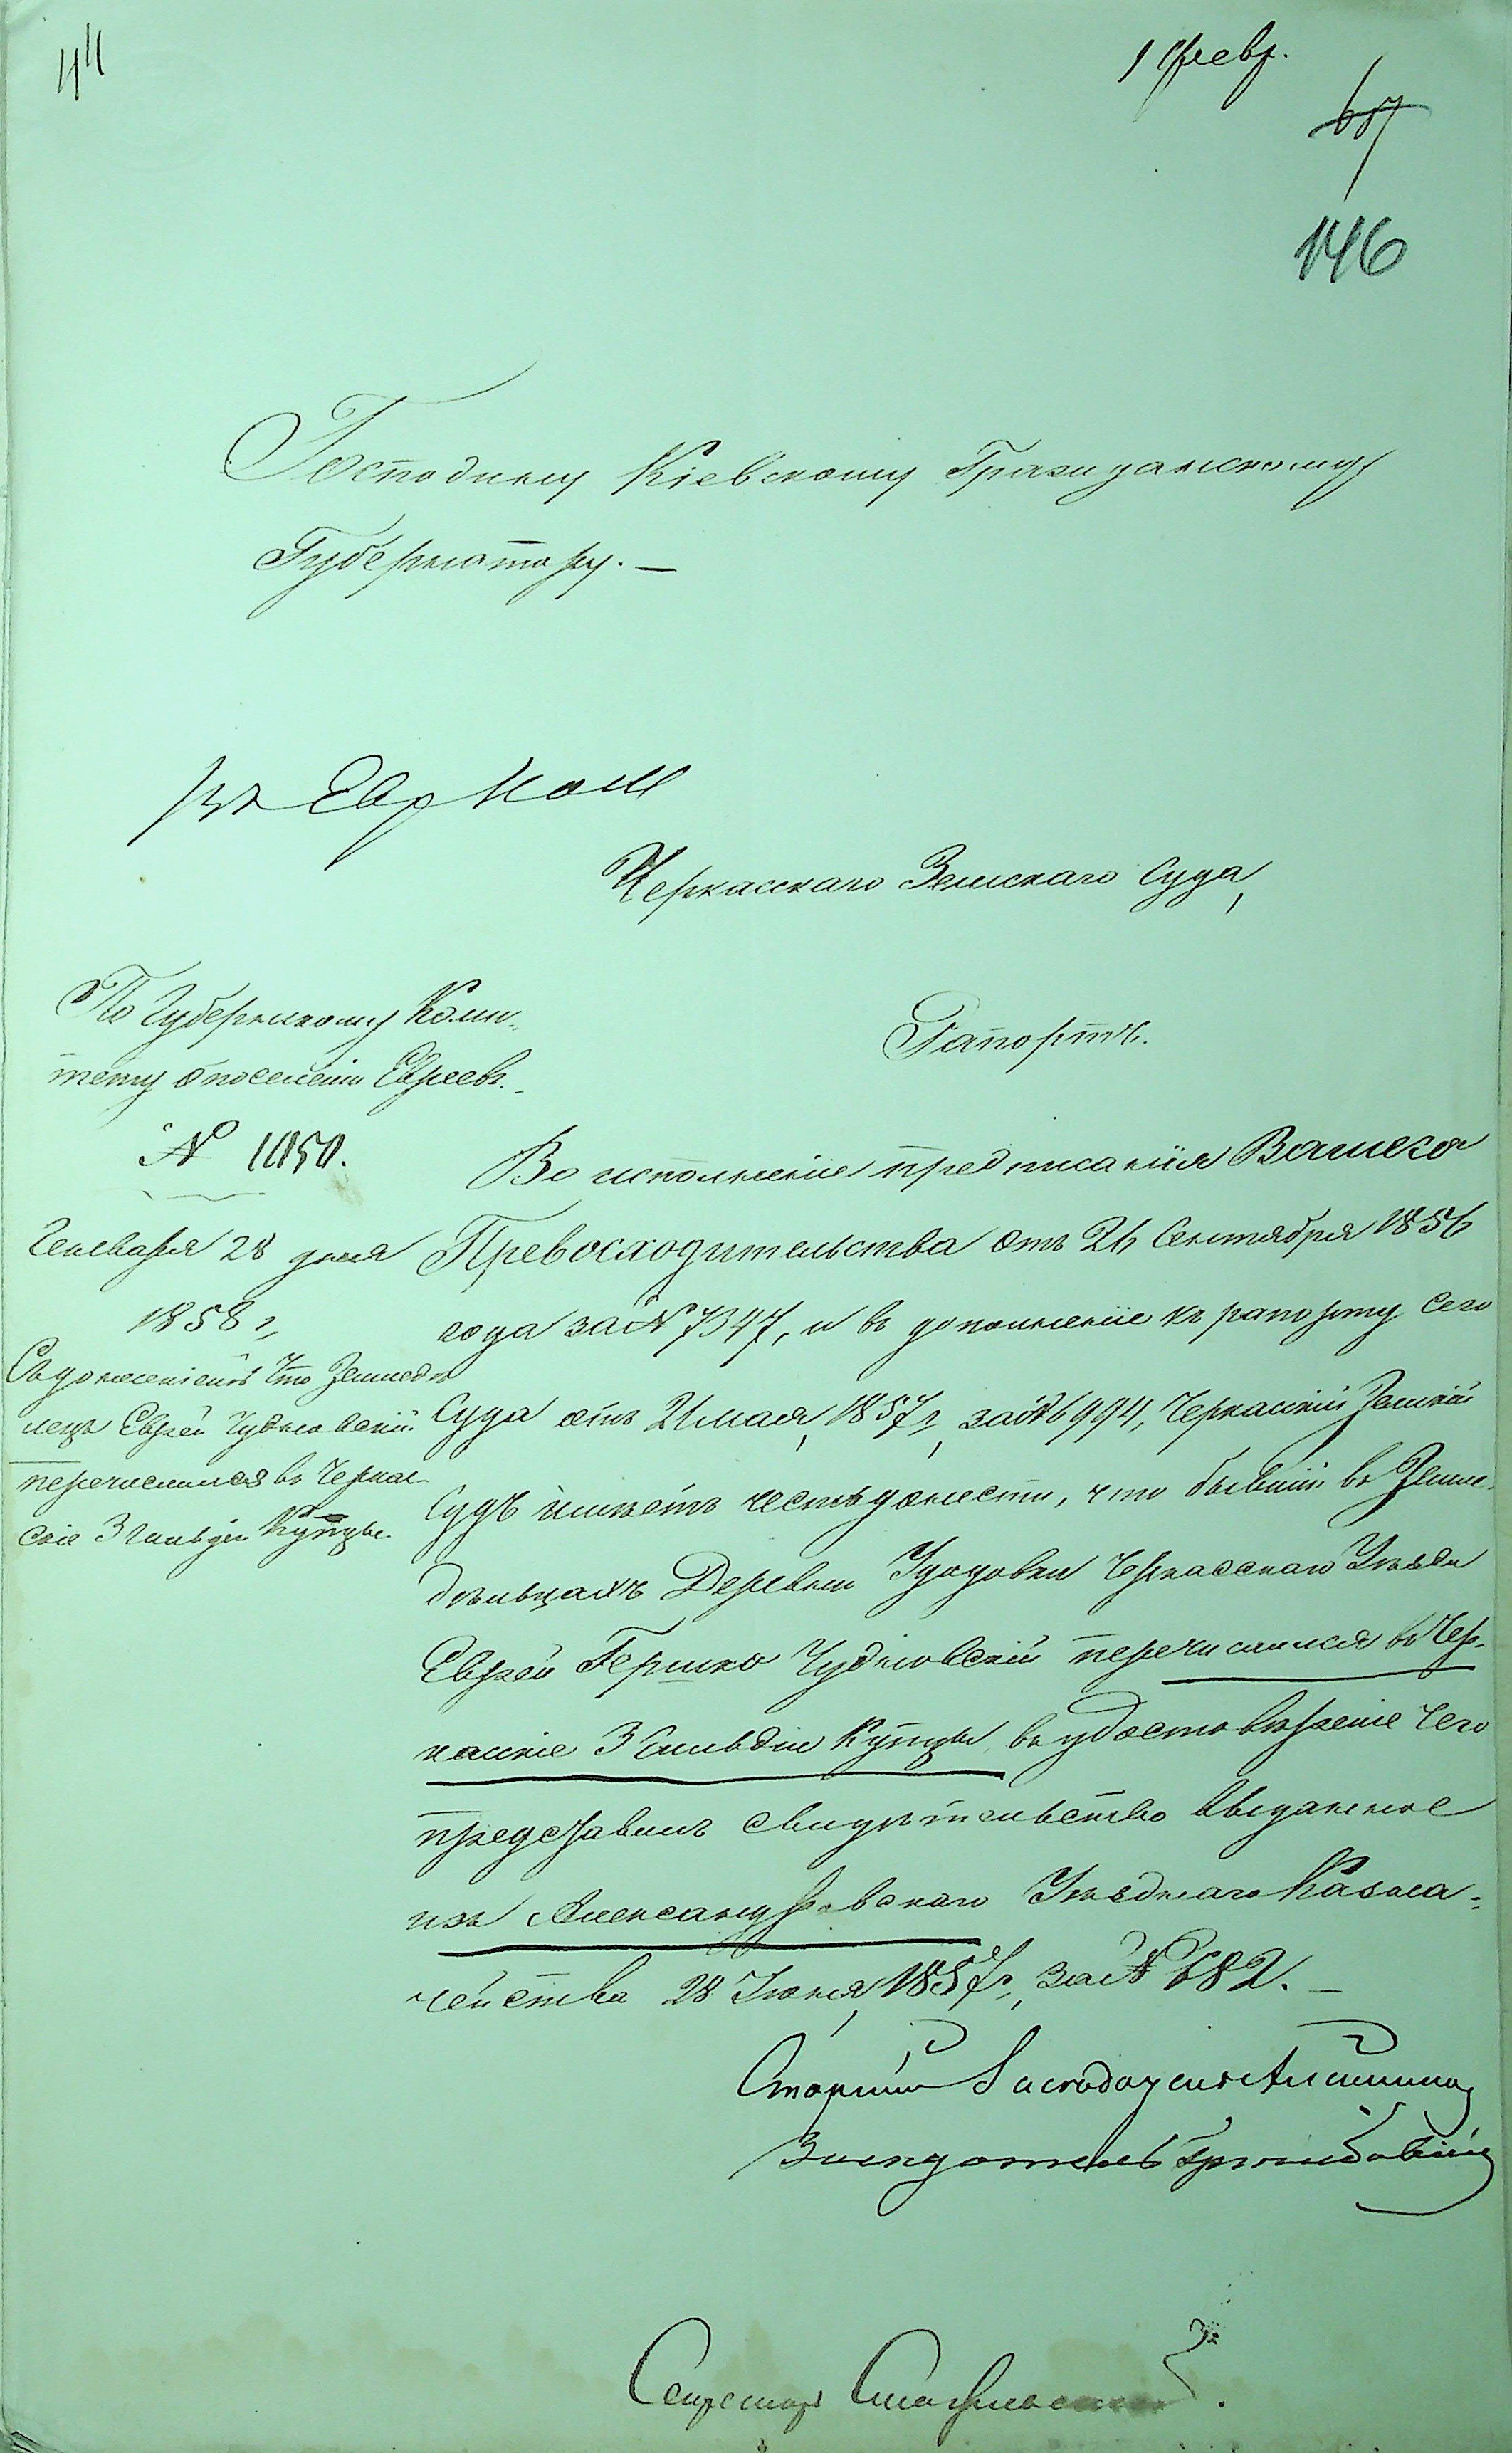 44
1 февр.
657
146
Господину Кіевскому Гражданскому
Губернатору. —
въ Евр Ком
Черкасскаго Земскаго Суда,
По Губернскому Коми-
тету о поселеніи Евреевъ.
Рапортъ.
№ 1050.
Генваря 28 дня
1858 г.
Съ донесеніемъ что Земледѣ
лецъ Еврей Чудновскій
перечислился въ Черкас-
скіе 3 гильдіи Купцы.
Во исполненіе предписанія Вашего
Превосходительства отъ 26 Сентября 1856
года за № 7347, и въ дополненіе къ рапорту сего
Суда отъ 21 мая, 1857 г, за № 6994, Черкаскій Земскій
Судъ имѣетъ честь донести, что бывшій въ Земле-
дѣльцахъ Деревни Черкасскаго Уѣзда
Еврей Гершко Чудновскій перечислился въ Чер-
каскіе 3 Гильдіи Купцы, въ удостовѣреніе чего
представилъ свидѣтельство выданное
изъ Александровскаго Уѣзднаго Казна-
чейства 28 Іюня, 1857 г, за № 682. —
Старшій
Засѣдатель
Секретарь